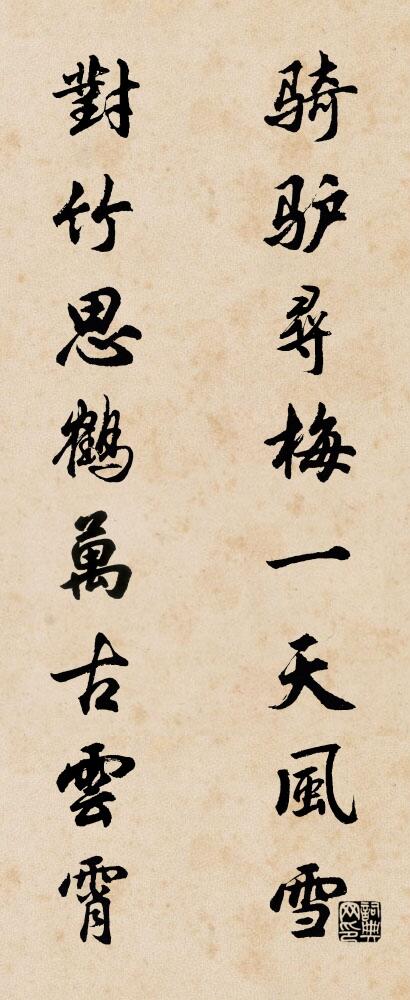 骑驴尋梅一天風雪
對竹思鶴萬古雲霄
詞典网印